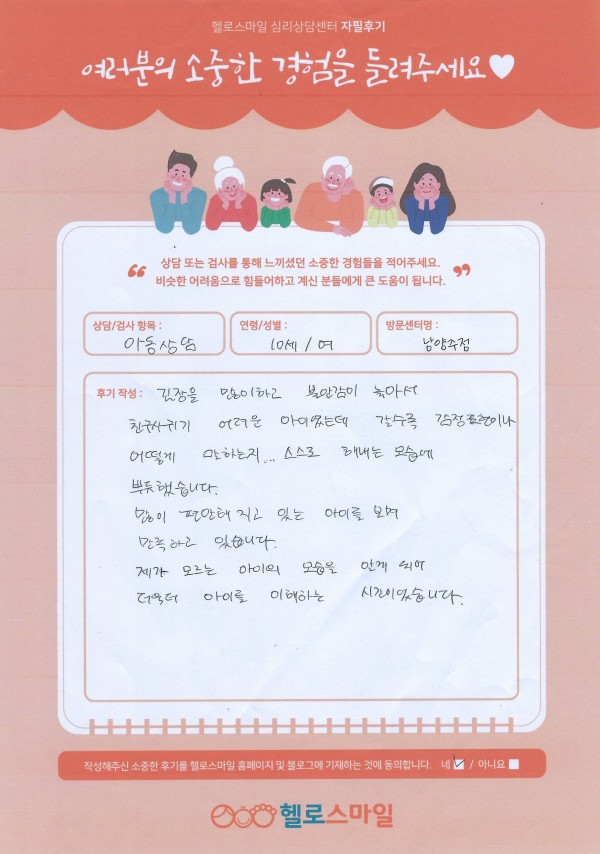 헬로스마일 심리상담센터 자필후기
여러분의 소중한 경험을 들려주세요♥
“ 상담 또는 검사를 통해 느끼셨던 소중한 경험들을 적어주세요. ”
비슷한 어려움으로 힘들어하고 계신 분들에게 큰 도움이 됩니다.
상담/검사 항목 : 아동상담
연령/성별 : 10세 / 여
방문센터명 : 남양주점
후기 작성 : 긴장을 많이하고 불안감이 높아서
친구사귀기 어려운 아이였는데 갈수록 감정표현이나
어떻게 말하는지... 스스로 해내는 모습에
뿌듯했습니다.
많이 편안해 지고 있는 아이를 보며
만족하고 있습니다.
제가 모르는 아이의 모습을 알게 되어
더욱더 아이를 이해하는 시간이었습니다.
작성해주신 소중한 후기를 헬로스마일 홈페이지 및 블로그에 기재하는 것에 동의합니다. 네 ☑ / 아니요 ☐
헬로스마일